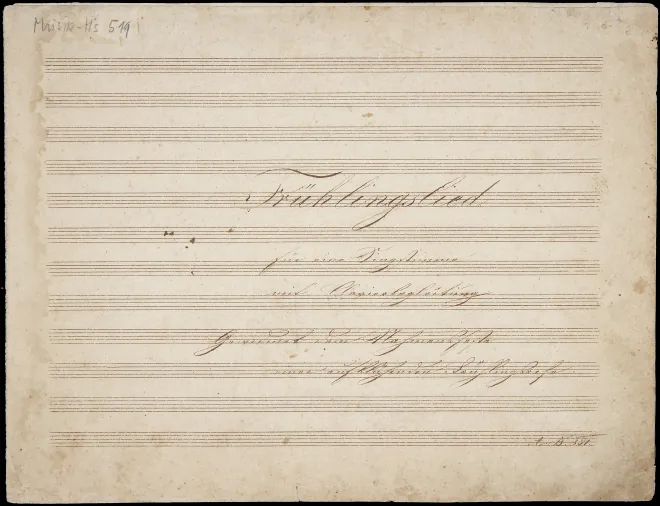 Musik-Hs 519
Frühlingslied
für eine Singstimme
mit Klavierbegleitung
Gewidmet dem Nahmensfeste
einer aufblühenden Frühlingsrose